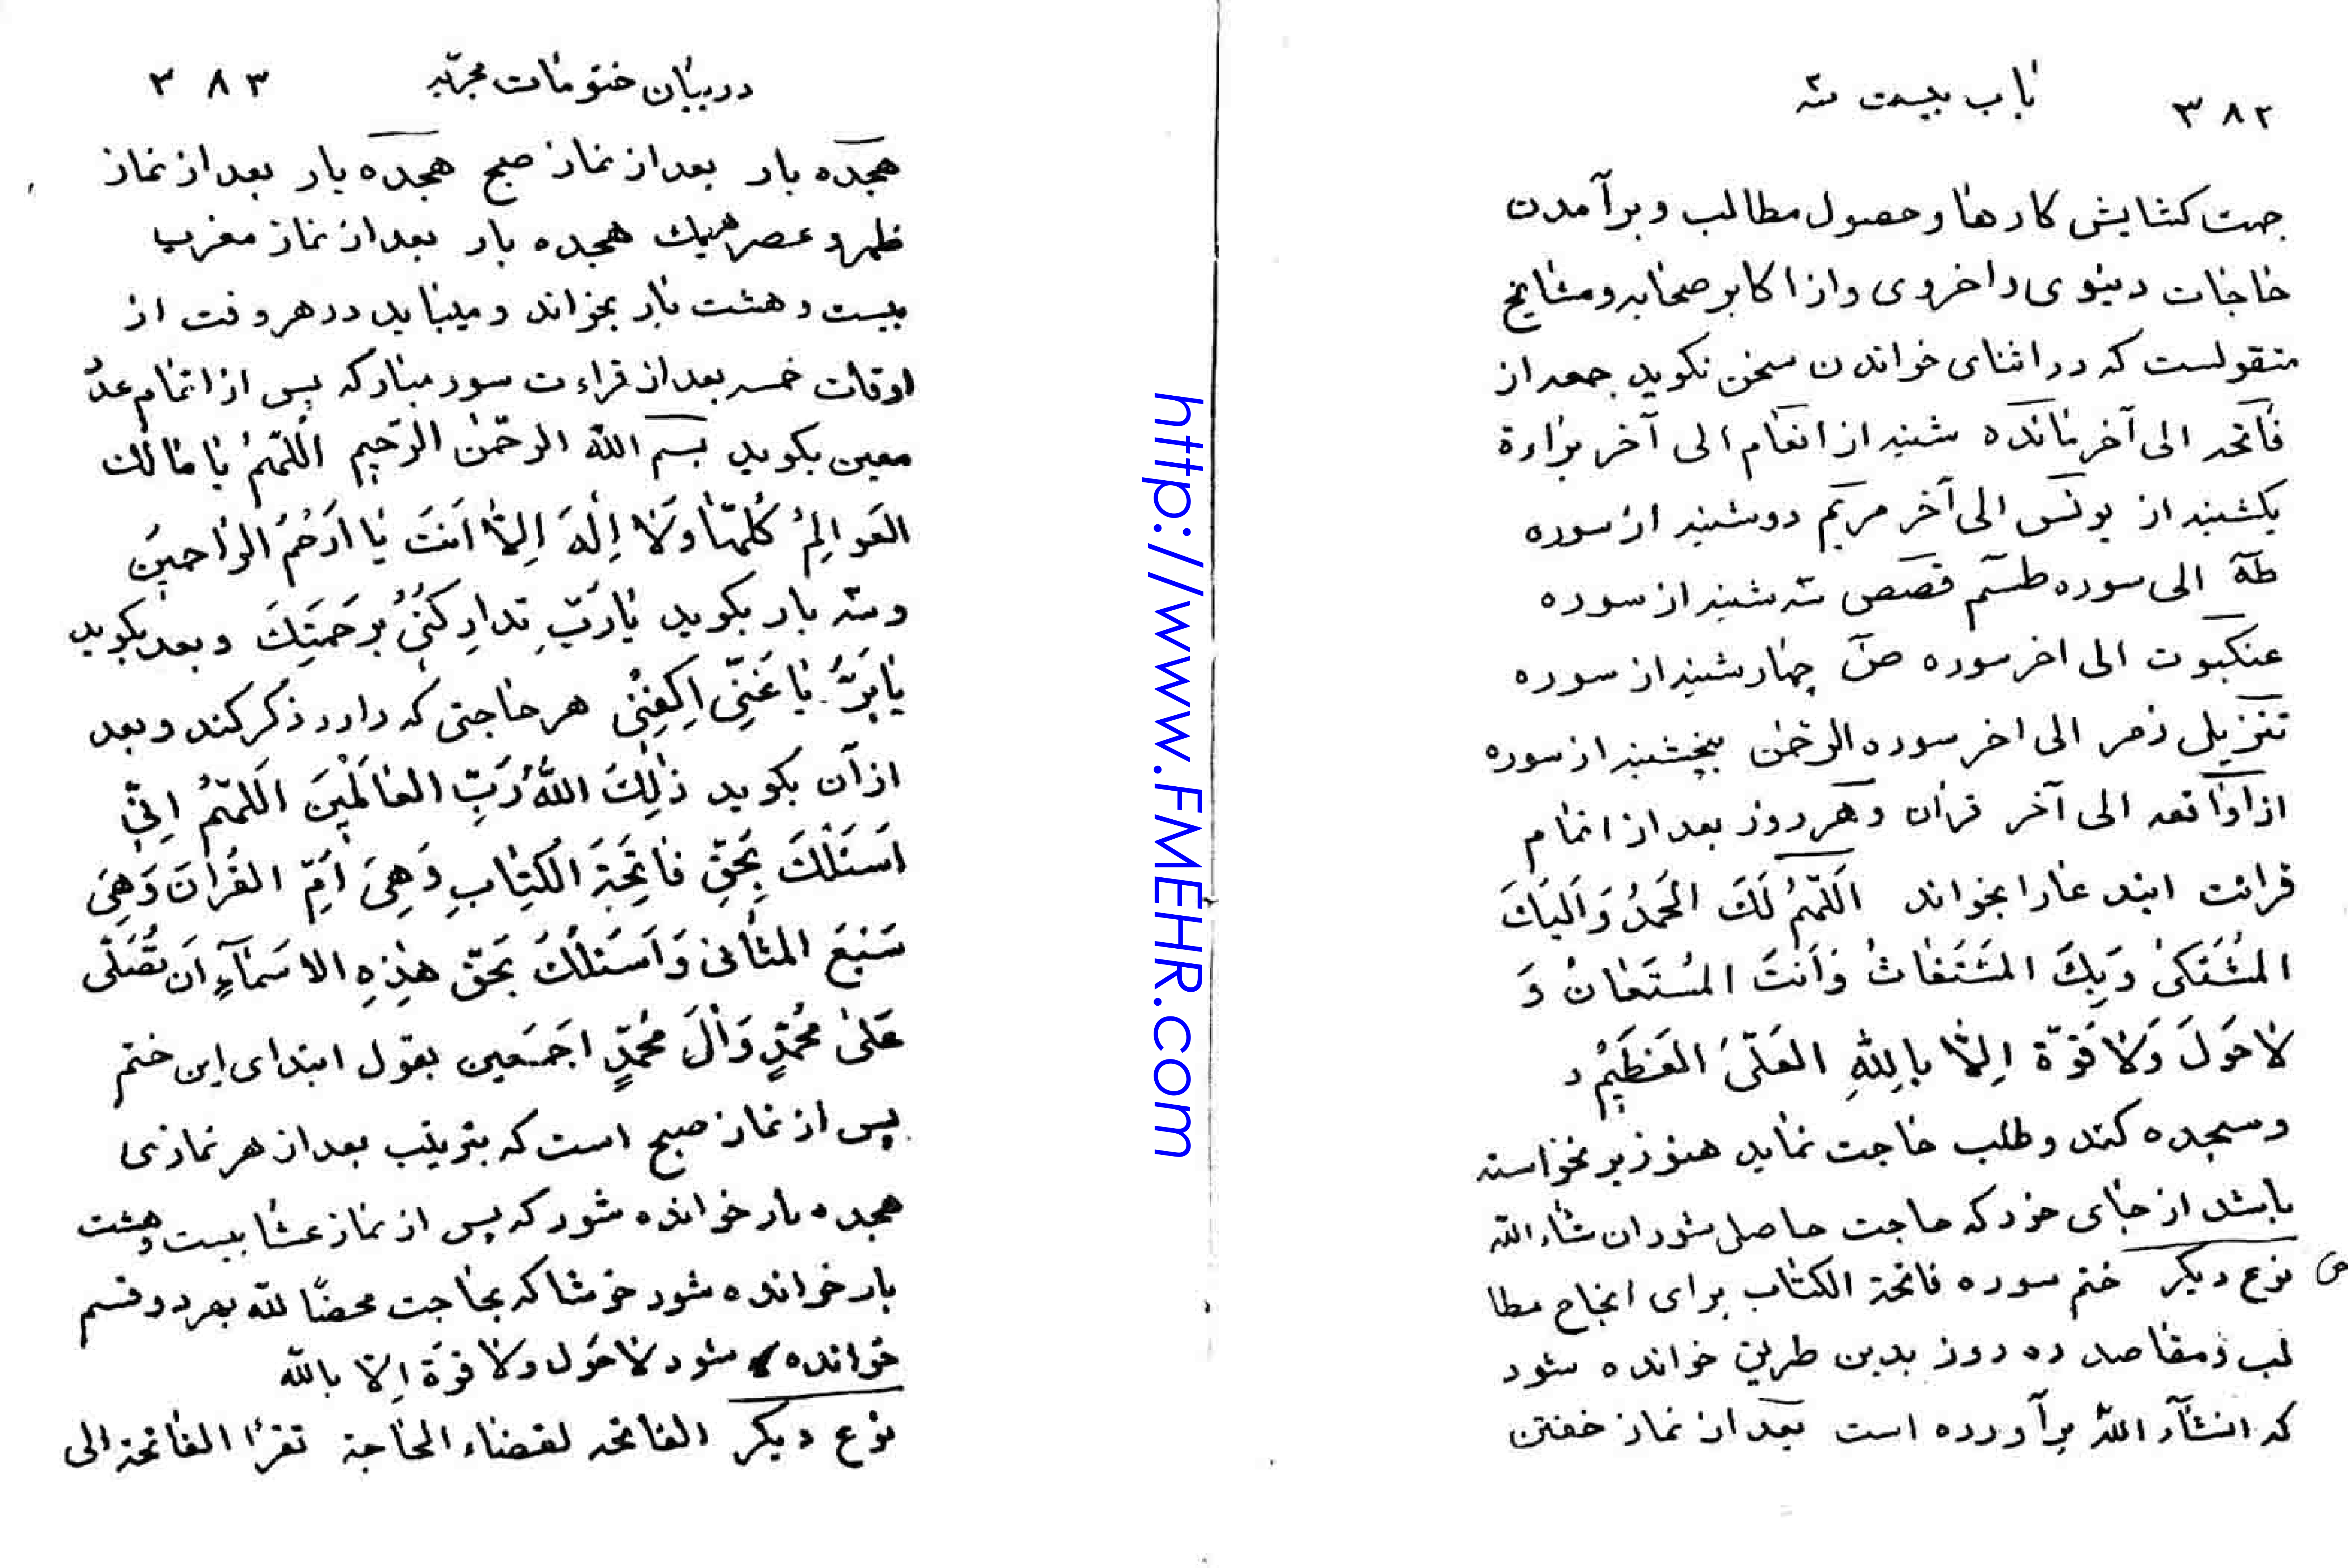 ٣٨٢ باب بیست سه
جهت کشایش کارها و حصول مطالب و برآمدن
حاجات دینوی و اخروی و از اکابر صحابه و مشایخ
منقولست که در اثنای خواندن سخن نکوید جمعه از
فاتحه الی آخر مائده شنبه از انعام الی آخر براءة
یکشنبه از یونس الی آخر مریم دوشنبه از سوره
طه الی سوره طسم قصص سه شنبه از سوره
عنکبوت الی اخر سوره ص چهارشنبه از سوره
تنزیل زمر الی اخر سوره الرحمن پنجشنبه از سوره
اذا واقعه الی آخر قران و هر روز بعد از اتمام
قرائت ایند عارا بخواند اَللّهُمَّ لَكَ الْحَمدُ وَ اَلَیكَ
المُشْتَكىٰ وَ بِكَ المُسْتَغٰاثُ وَ اَنتَ المُسْتَعٰانُ وَ
لاٰ حَولَ وَلاٰ قُوّة اِلاّٰ بِاللهِ العَلّیِ العَظیٖم د
و سجده کند و طلب حاجت نماید هنوز بر نخواسته
باشد از جای خود که حاجت حاصل شود ان شاء الله
نوع دیکر ختم سوره فاتحة الکتاب برای انجاح مطا
لب و مقاصد ده روز بدین طریق خوانده شود
که انشآء الله برآورده است بعد از نماز خفتن
در بیان ختومات مجربه ٣٨٣
هجده بار بعد از نماز صبح هجده بار بعد از نماز
ظهر و عصر هریک هجده بار بعد از نماز مغرب
بیست و هشت بار بخواند و میباید در هر وقت از
اوقات خمسه بعد از قراءت سوره مبارکه پس از اتمام عدد
معین بکوید بسم الله الرحمن الرحیم اَللّهُمَّ یا مٰالك
العَوالِمِ كُلهّا وَلاٰ اِلٰهَ اِلاّٰ اَنتَ یٰا اَرْحَمَ الراحِمیٖنَ
و سه بار بکوید یٰا رَبِّ تداركنی بِرَحمَتِكَ و بعد بکوید
یٰا بَرُّ یٰا غَنِیّ اِكفِنٖی هر حاجتی که دارد ذکر کند و بعد
از آن بکوید ذٰلِكَ اللهُ رَبّ العٰالَمیٖنَ اَللّهُمَّ اِنّیٖ
اَسَئَلُكَ بِحَقِّ فٰاتِحَةَ الْكِتٰابِ وَ هِیَ اُمّ القُرٰان وَ هِیَ
سَبْعَ المَثٰانی وَ اَسَئَلُكَ بِحَقّ هٰذِهِ الاسمٰآءِ اَن تُصَلّی
عَلیٰ مُحَمّدٍ وَ اٰلَ مُحَمّدٍ اَجمَعین بقول ابتدای این ختم
پس از نماز صبح است که بترتیب بعد از هر نمازی
هجده بار خوانده شود که پس از نماز عشا بیست و هشت
بار خوانده شود خوشا که بحاجت محضًا لله بهر دو قسم
خوانده شود لاٰ حَول ولاٰ قوّة اِلاّ بالله
نوع دیکر الفاتحه لقضاء الحاجة تقرأ الفاتحة الی
http://www.FMEHR.com